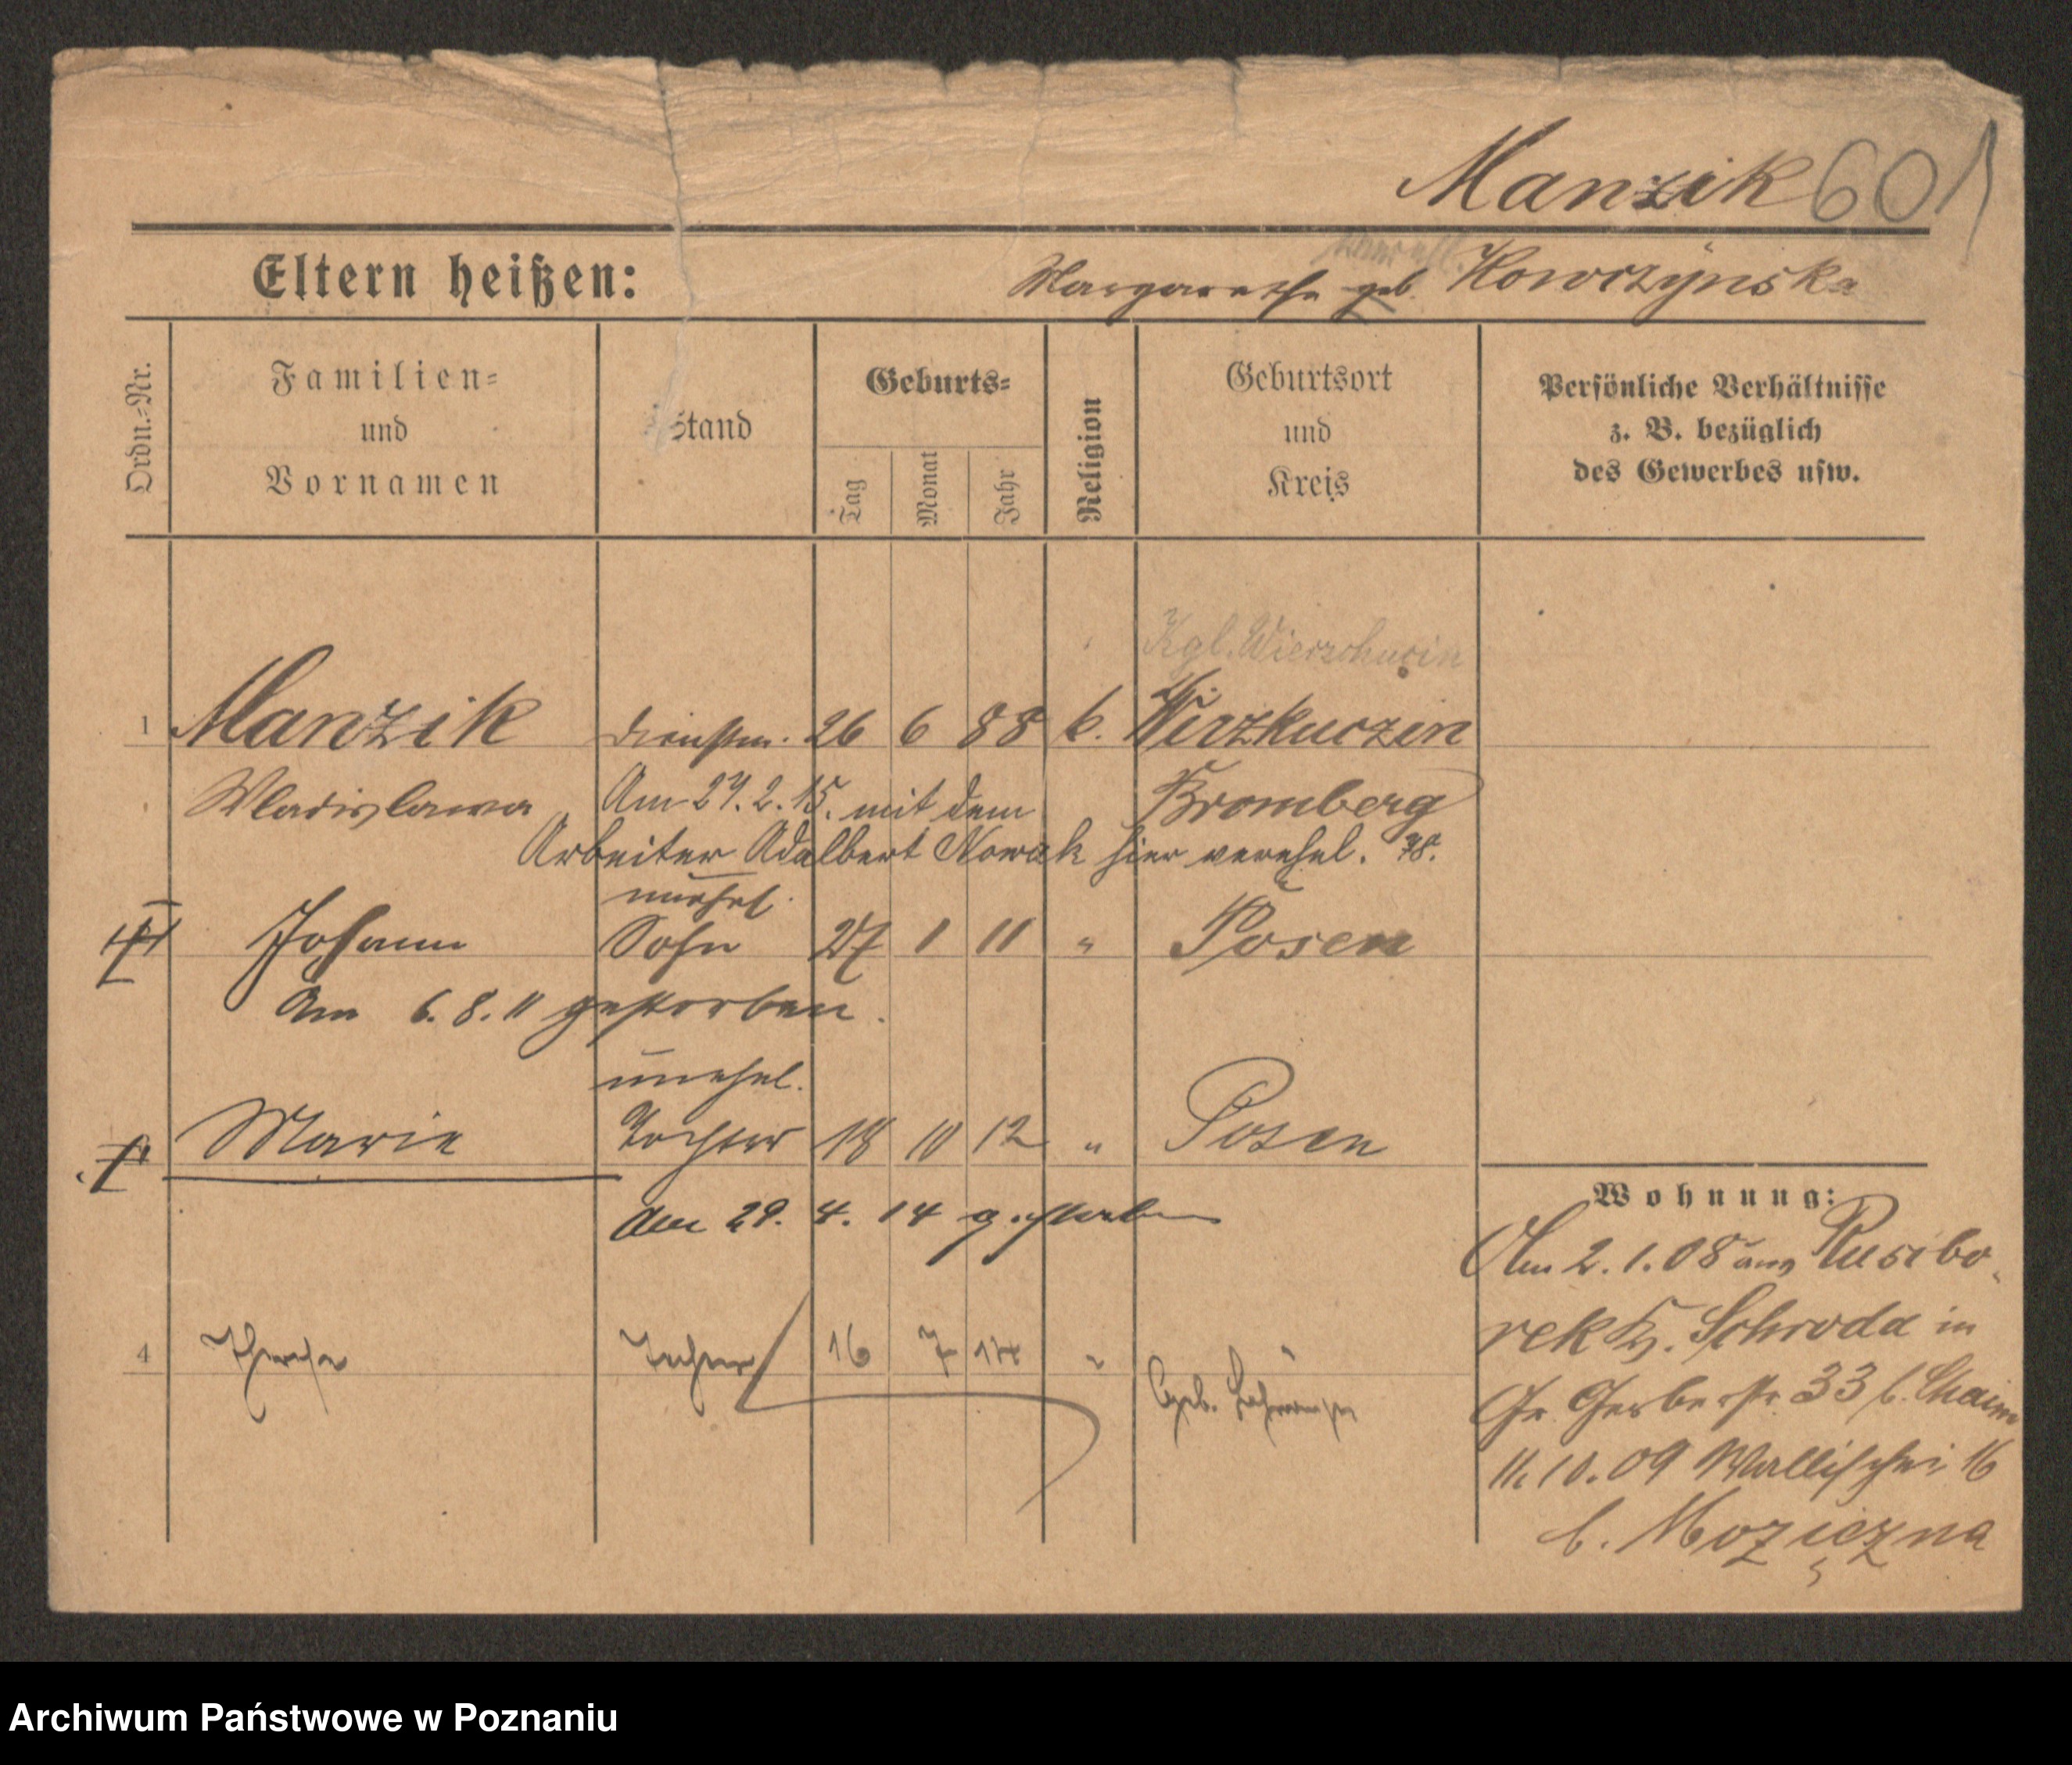 Manzik 601
Eltern heißen:
Margarethe geb. Kowczynska
Ordn.-Nr.
Familien-
und
Vornamen
Stand
Geburts-
Tag
Monat
Jahr
Religion
Geburtsort
und
Kreis
Persönliche Verhältnisse
z. B. bezüglich
des Gewerbes usw.
Kgl. Wierzchucin
1 Manzik Dienstm. 26 6 88 k. Wirzkuczin
Wladislawa Am 27. 2. 15. mit dem Bromberg
Arbeiter Adalbert Nowak hier verehel.
unehel.
Johann Sohn 27 1 11 " Posen
Am 6. 8. 11 gestorben.
unehel.
Marie Tochter 18 10 12 " Posen
Am 29. 4. 14 gestorben
4 Tochter 16 7 14 "
Geb.
Wohnung:
Am 2. 1. 08 aus Rusibo-
rek Kr. Schroda in
Gr. Gerberstr. 33 b. Chaim
11. 10. 09 Wallischei 16
b.
Archiwum Państwowe w Poznaniu